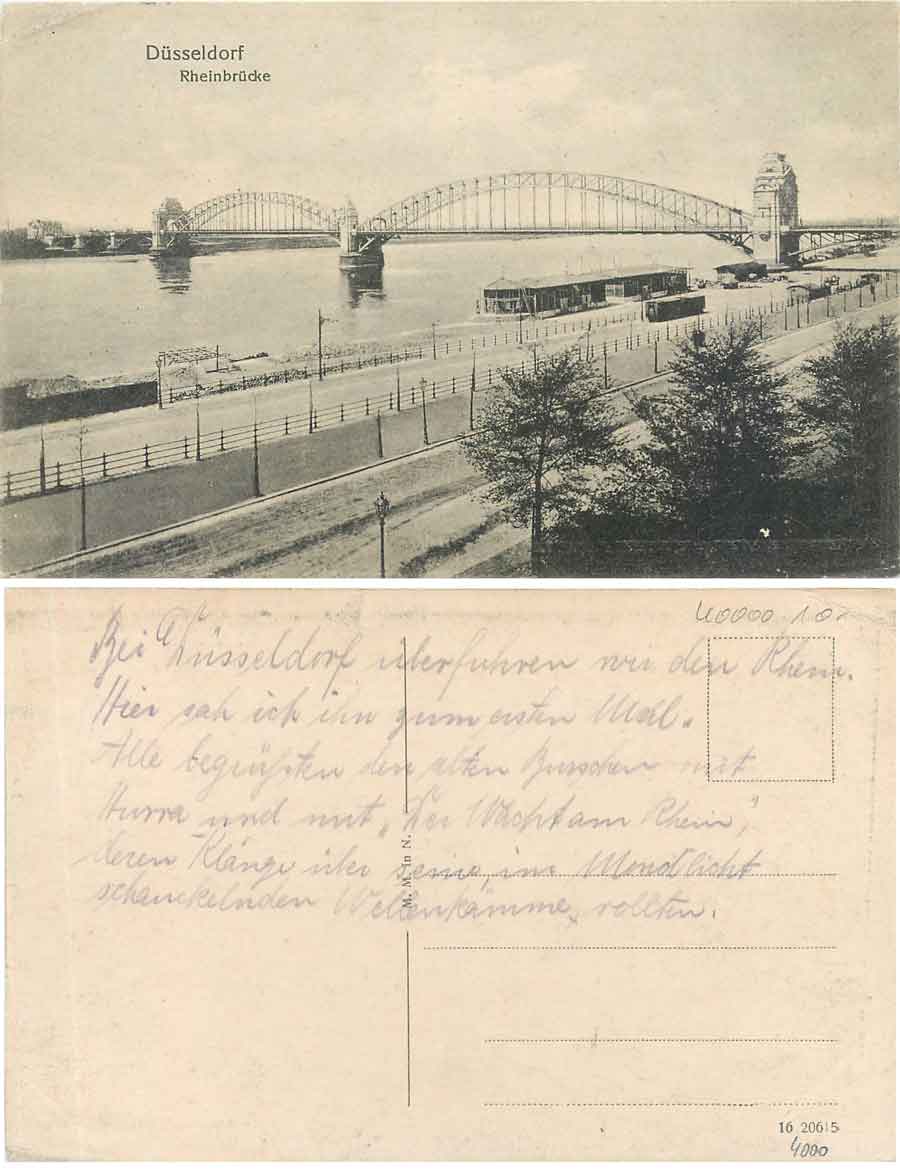 Düsseldorf
Rheinbrücke
40000.10
Bei Düsseldorf überfuhren wir den Rhein.
Hier sah ich ihn zum ersten Mal.
Alle begrüßten den alten Burschen mit
Hurra und mit „Die Wacht am Rhein",
deren Klänge über seine, im Mondlicht
schauckelnden Wellenkämme, rollten.
M. M. in N.
16 20615
4000